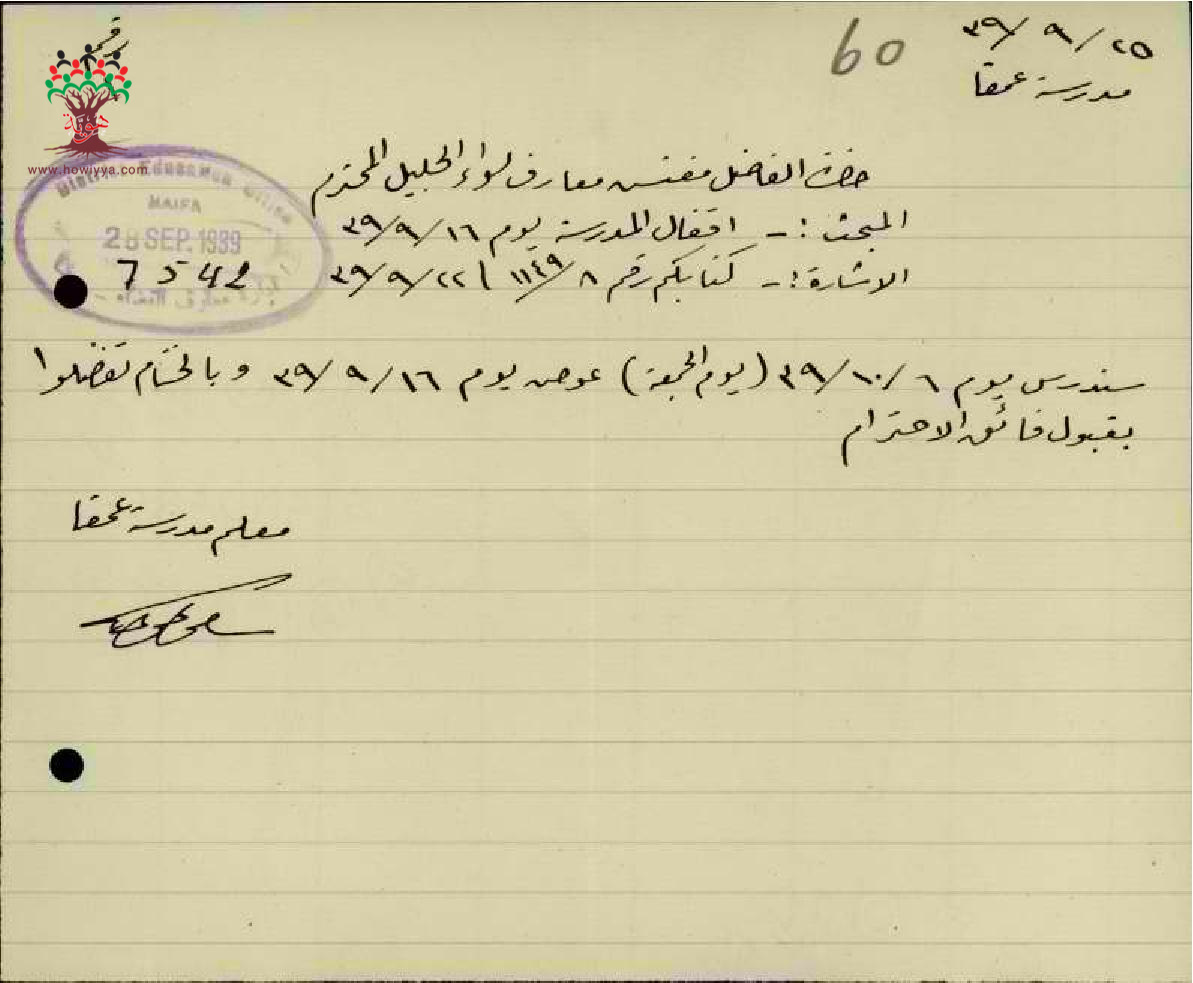 ٢٥/ ٩ /٣٩
60
مدرسة عمقا
رقم
هوية
www.howiyya.com
District Education Office
HAIFA
28 SEP. 1939
7542
حضرة الفاضل مفتش معارف لواء الجليل المحترم
المبحث :- اقفال المدرسة يوم ١٦/ ٩/ ٣٩
الاشارة :- كتابكم رقم ٨/ ١١٤٩ / ٢٢/ ٩/ ٣٩
سندرس يوم ٦/ ١٠/ ٣٩ (يوم الجمعة) عوض يوم ١٦/ ٩/ ٣٩ وبالختام تفضلوا
بقبول فائق الاحترام
معلم مدرسة عمقا